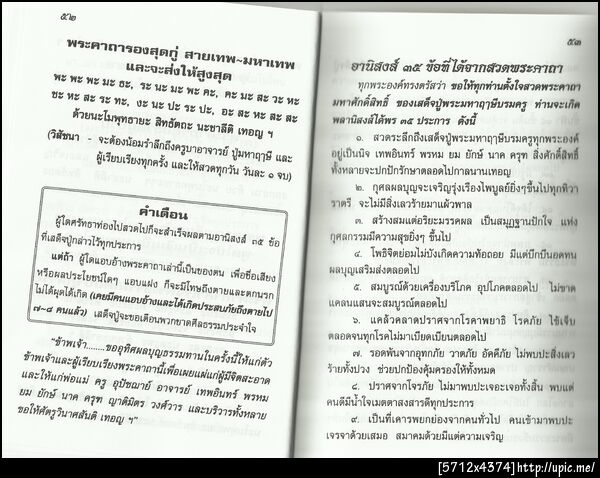 ๕๒
พระคาถารองสุดกู่ สายเทพ~มหาเทพ
และจะส่งให้สูงสุด
พะ พะ พะ มะ ธะ, ระ นะ มะ พะ คะ, คะ มะ สะ วะ หะ
ชะ หะ สะ ระ ทะ, งะ นะ ปะ ระ ปะ, อะ สะ หะ สะ สะ
ด้วยนะโมพุทธายะ สิทธัตถะ นะชาลีติ เทอญ ฯ
(วิสัชนา - จะต้องน้อมรำลึกถึงครูบาอาจารย์ ปู่มหาฤๅษี และ
ผู้เรียบเรียงทุกครั้ง และให้สวดทุกวัน วันละ ๑ จบ)
คำเตือน
ผู้ใดศรัทธาท่องไปสวดไปก็จะสำเร็จผลตามอานิสงส์ ๓๕ ข้อ
ที่เสด็จปู่กล่าวไว้ทุกประการ
แต่ถ้า ผู้ใดแอบอ้างพระคาถาเล่านี้เป็นของตน เพื่อชื่อเสียง
หรือผลประโยชน์ใดๆ แอบแฝง ก็จะมีโทษถึงตายและตกนรก
ไม่ได้ผุดได้เกิด (เคยมีคนแอบอ้างและได้เกิดประสบภัยถึงตายไป
๗-๘ คนแล้ว) เสด็จปู่จะขอเตือนพวกขาดศีลธรรมประจำใจ
"ข้าพเจ้า........ขออุทิศผลบุญธรรมทานในครั้งนี้ให้แก่ตัว
ข้าพเจ้าและผู้เรียบเรียงพระคาถานี้เพื่อเผยแผ่แก่ผู้มีจิตสะอาด
และให้แก่พ่อแม่ ครู อุปัชฌาย์ อาจารย์ เทพอินทร์ พรหม
ยม ยักษ์ นาค ครุฑ ญาติมิตร วงศ์วาร และบริวารทั้งหลาย
ขอให้ศัตรูวินาศสันติ เทอญ ฯ"
๕๓
อานิสงส์ ๓๕ ข้อที่ได้จากสวดพระคาถา
ทุกพระองค์ทรงตรัสว่า ขอให้ทุกท่านตั้งใจสวดพระคาถา
มหาศักดิ์สิทธิ์ ของเสด็จปู่พระมหาฤๅษีบรมครู ท่านจะเกิด
พลานิสงส์ได้พร ๓๕ ประการ ดังนี้
๑. สวดระลึกถึงเสด็จปู่พระมหาฤๅษีบรมครูทุกพระองค์
อยู่เป็นนิจ เทพอินทร์ พรหม ยม ยักษ์ นาค ครุฑ สิ่งศักดิ์สิทธิ์
ทั้งหลายจะปกปักรักษาตลอดไปกาลนานเทอญ
๒. กุศลผลบุญจะเจริญรุ่งเรืองไพบูลย์ยิ่งๆขึ้นไปทุกทิวา
ราตรี จะไม่มีสิ่งเลวร้ายมาแผ้วพาล
๓. สร้างสมแต่อริยะมรรคผล เป็นสมุฏฐานปักใจ แห่ง
กุศลกรรมมีความสุขยิ่งๆ ขึ้นไป
๔. โพธิจิตย่อมไม่บังเกิดความท้อถอย มีแต่บึกบึนอดทน
ผลบุญเสริมส่งตลอดไป
๕. สมบูรณ์ด้วยเครื่องบริโภค อุปโภคตลอดไป ไม่ขาด
แคลนแสนจะสมบูรณ์ตลอดไป
๖. แคล้วคลาดปราศจากโรคาพยาธิ โรคภัย ไข้เจ็บ
ตลอดจนทุกโรคไม่มาเบียดเบียนตลอดไป
๗. รอดพ้นจากอุทกภัย วาตภัย อัคคีภัย ไม่พบปะสิ่งเลว
ร้ายทั้งปวง ช่วยปกป้องคุ้มครองให้ทั้งหมด
๘. ปราศจากโจรภัย ไม่มาพบปะเจอะเจอทั้งสิ้น พบแต่
คนดีมีน้ำใจเมตตาสงสารดีทุกประการ
๙. เป็นที่เคารพยกย่องจากคนทั่วไป คนเข้ามาพบปะ
เจรจาด้วยเสมอ สมาคมด้วยมีแต่ความเจริญ
[5712x4374]http://upic.me/